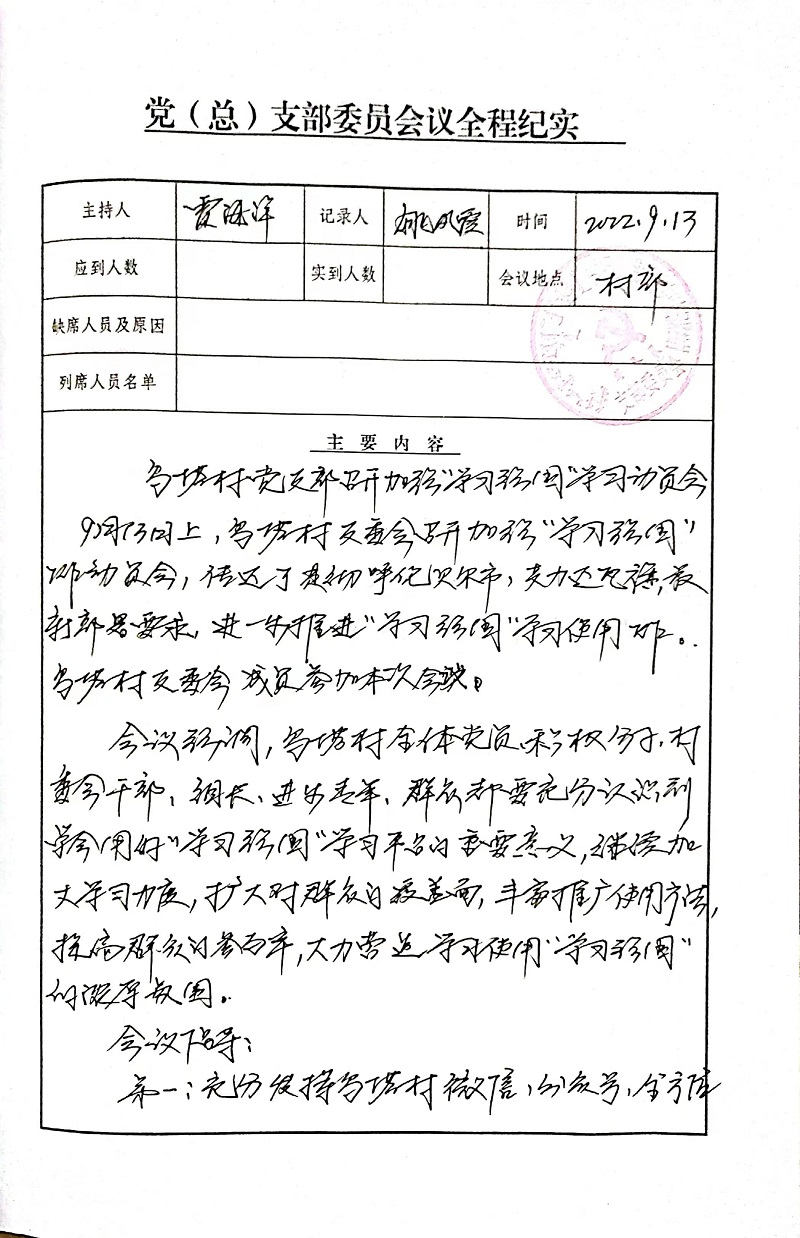 党（总）支部委员会议全程纪实
主持人 贾海洋 记录人 姚凤霞 时间 2022.9.13
应到人数 实到人数 会议地点 村部
缺席人员及原因
列席人员名单
主要内容
乌塔村党支部召开加强"学习强国"学习动员会
9月13日上，乌塔村支委会召开加强"学习强国"
动员会，传达了贯彻呼伦贝尔市，莫力达瓦旗，最
新部署要求，进一步推进"学习强国"学习使用工作。
乌塔村支委会成员参加本次会议。
会议强调，乌塔村全体党员、积极分子、村
委会干部、组长、进步青年、群众都要充分认识到
学会用好"学习强国"学习平台的重要意义，继续加
大学习力度，扩大对群众的覆盖面，丰富推广使用方法，
提高群众的参与率，大力营造学习使用"学习强国"
的浓厚氛围。
会议指导：
第一：充分发挥乌塔村微信，公众号，全方位